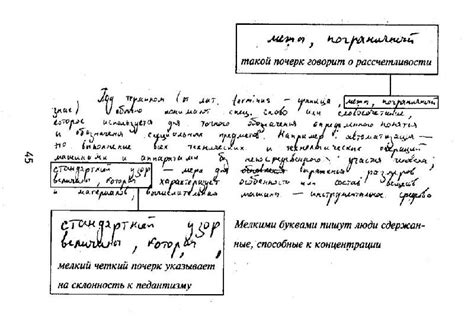 меты, пограничный
такой почерк говорит о рассчетливости
Под термином (от лат. terminus – граница, меты, пограничный
знак) обычно понимают слово или словосочетание,
которое используется для точного обозначения определенного понятия
и обозначения предмета. Например: автоматизация —
выполнение всех технических и технологических операций
машинами и аппаратами без непосредственного участия человека;
стандартный узор — мера для выражения размеров
величины, которая характеризует особенности или состав веществ
и материалов; вычислительная машина — инструментальное средство
45
стандартный узор
величины, которая,
мелкий четкий почерк указывает
на склонность к педантизму
Мелкими буквами пишут люди сдержан-
ные, способные к концентрации